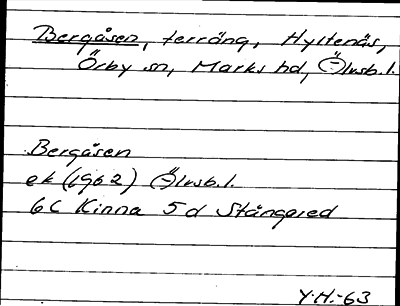 Bergåsen, terräng, Hyltenäs,
Örby sn, Marks hd, Älvsb.l.
Bergåsen
ek (1962) Älvsb.l.
6C Kinna 5d Stångared
Y.H.-63